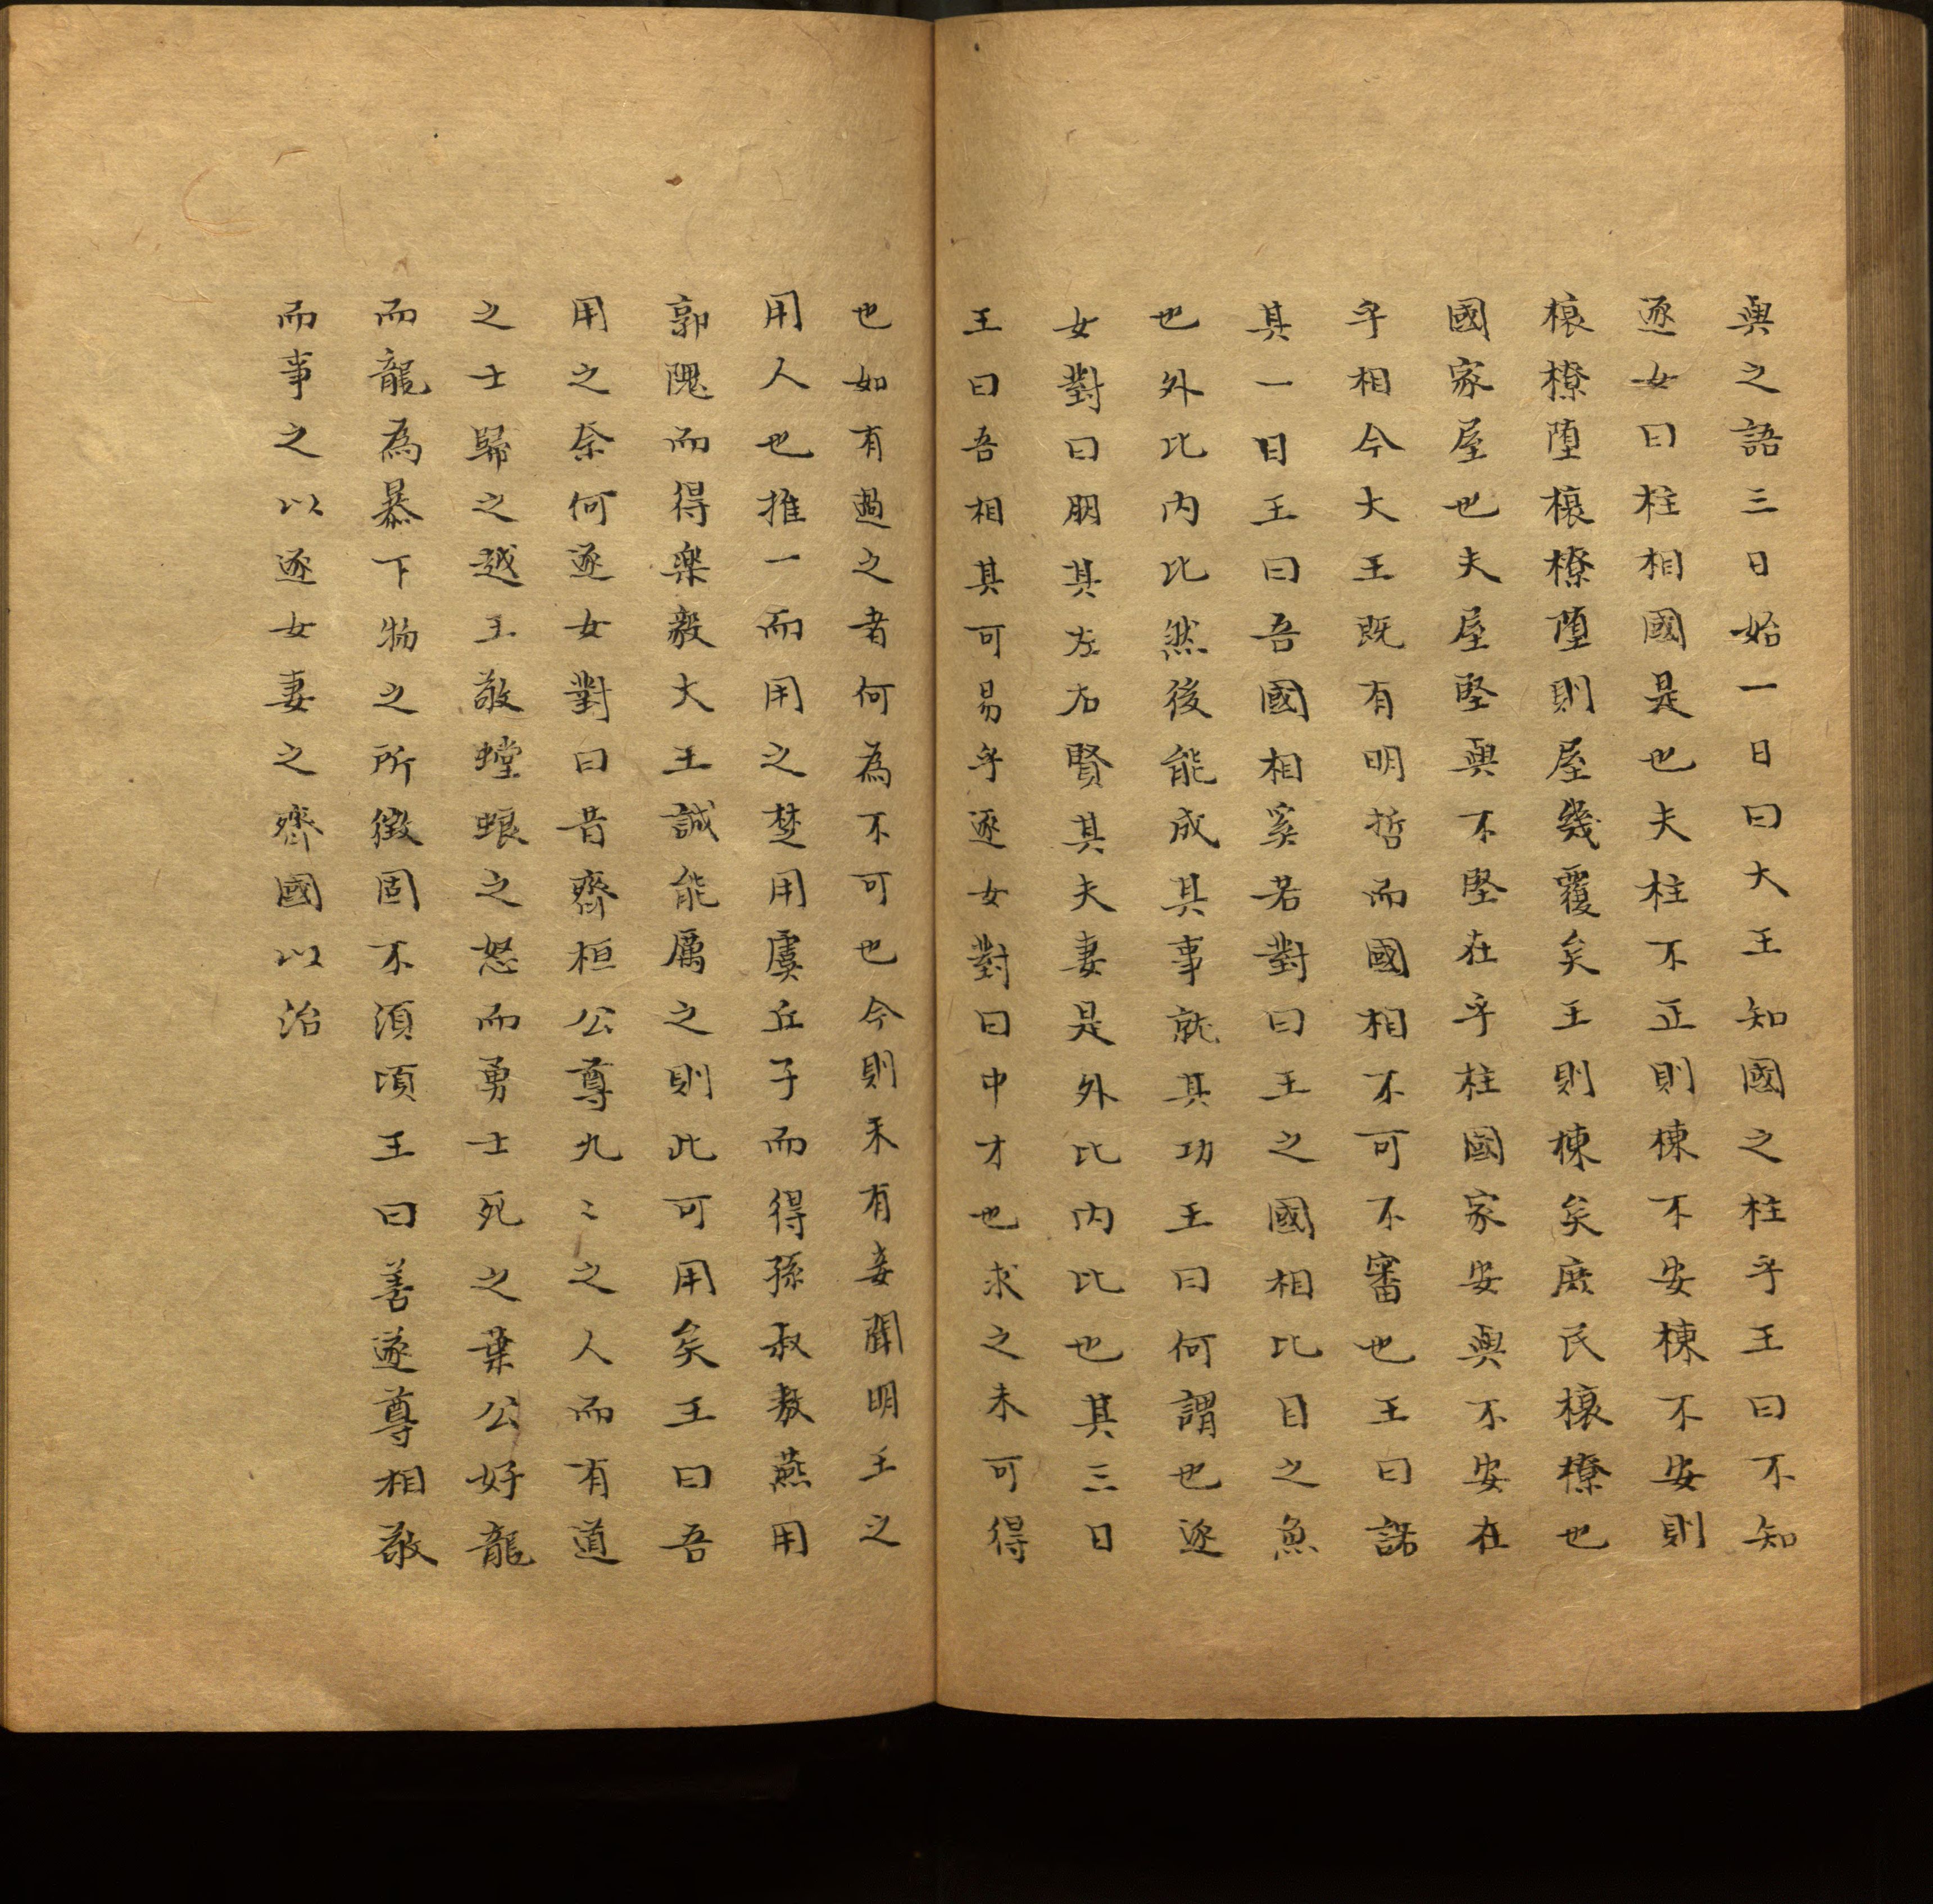 與之語三日始一日曰大王知國之柱乎王曰不知
逐女曰柱相國是也夫柱不正則棟不安棟不安則
榱橑墮榱橑墮則屋幾覆矣王則棟矣庶民榱橑也
國家屋也夫屋堅與不堅在乎柱國家安與不安在
乎相今大王既有明哲而國相不可不審也王曰諾
其一日王曰吾國相奚若對曰王之國相比目之魚
也外比內比然後能成其事就其功王曰何謂也逐
女對曰朋其左右賢其夫妻是外比內比也其三日
王曰吾相其可易乎逐女對曰中才也求之未可得
也如有過之者何為不可也今則未有妾聞明王之
用人也推一而用之楚用虞丘子而得孫叔敖燕用
郭隗而得樂毅大王誠能厲之則此可用矣王曰吾
用之奈何逐女對曰昔齊桓公尊九〻之人而有道
之士歸之越王敬螳蜋之怒而勇士死之葉公好龍
而龍為暴下物之所徵固不湏頃王曰善遂尊相敬
而事之以逐女妻之齊國以治